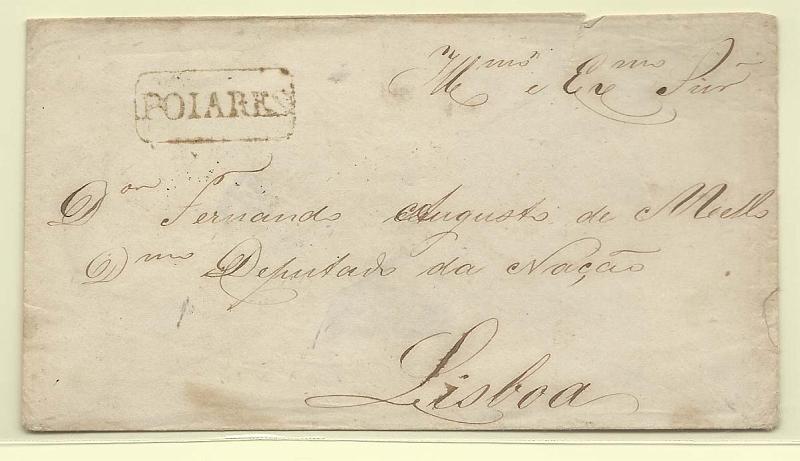 POIARES
Illmo e Exmo Snr
Dor Fernando Augusto de Mello
Dmo Deputado da Nação
Lisboa